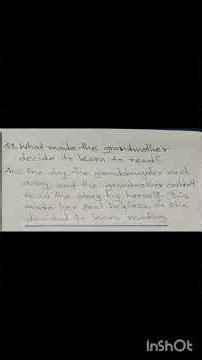 Q3. What made the grandmother
decide to learn to read?
Ans: One day, the granddaughter went
away, and the grandmother couldn't
read the story by herself. This
made her feel helpless, so she
decided to learn reading
InShOt